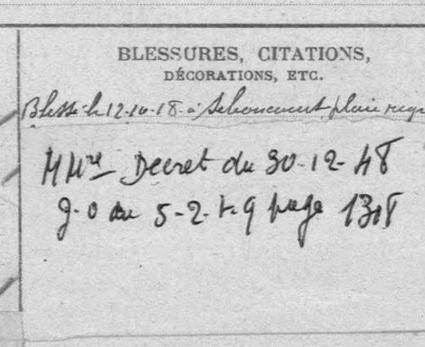 BLESSURES, CITATIONS,
DÉCORATIONS, ETC.
Blessé le 12.10.18 à Seboncourt plaie
MMre Decret du 30-12-48
J.O du 5-2-49 page 1308